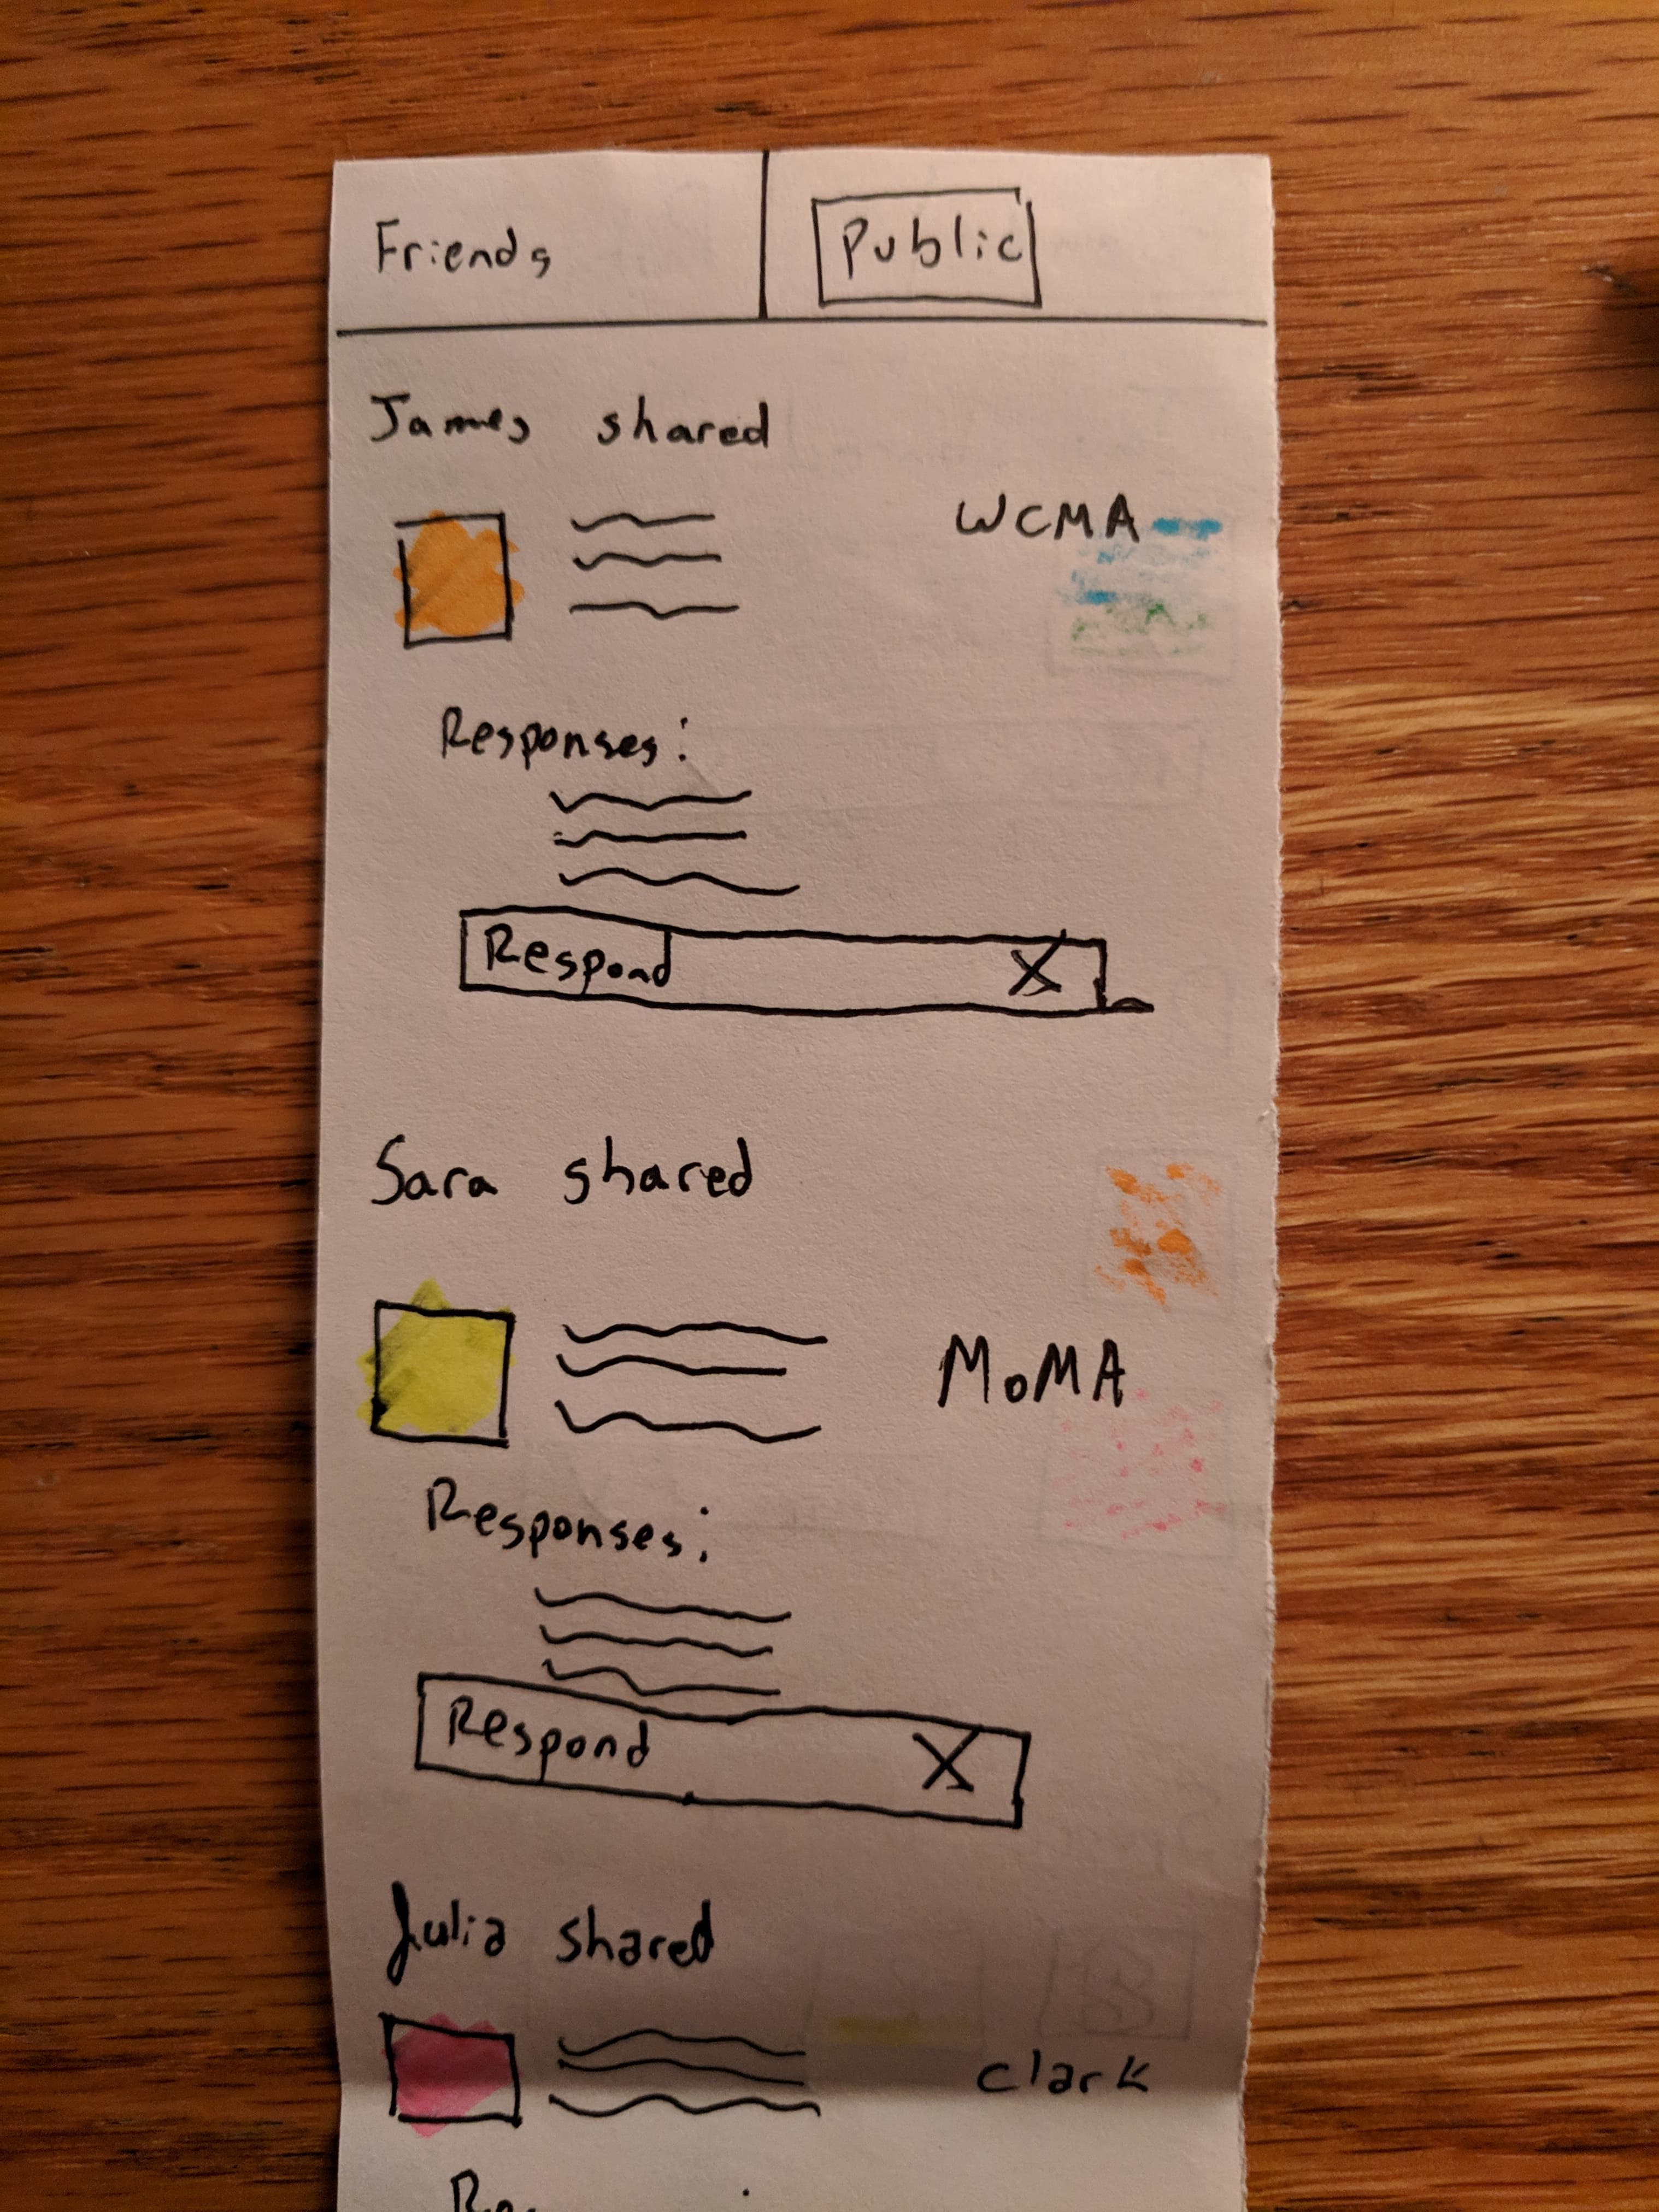 Friends Public
James shared
WCMA
Responses:
Respond X
Sara shared
MoMA
Responses:
Respond X
Julia shared
clark